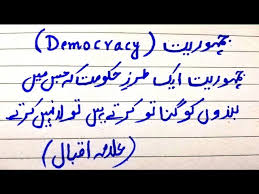 جمہوریت (Democracy)
جمہوریت ایک طرزِ حکومت کہ جس میں
بندوں کو گنا تو کرتے ہیں تولا نہیں کرتے
(علامہ اقبال)